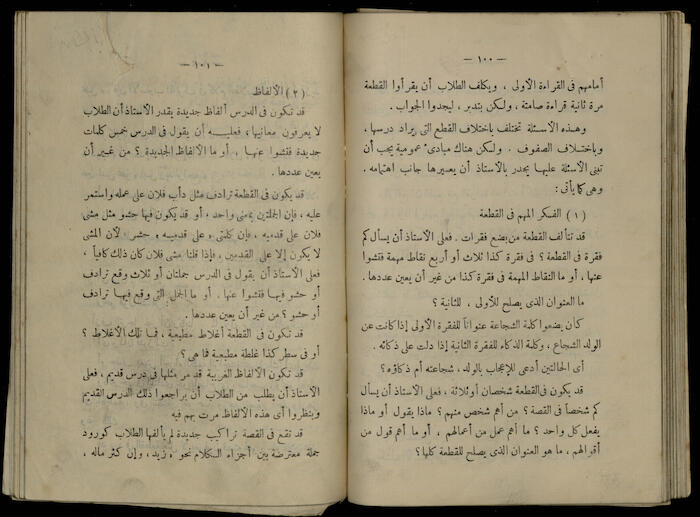 — ١٠٠ —
أمامهم فى القراءة الأولى ، ويكلف الطلاب أن يقرأوا القطعة
مرة ثانية قراءة صامتة ، ولكن بتدبر ، ليجدوا الجواب .
وهذه الاسئلة تختلف باختلاف القطع التى يراد درسها ،
وباختلاف الصفوف . ولكن هناك مبادئ عمومية يجب أن
تبنى الأسئلة عليها يجدر بالأستاذ أن يعيرها جانب اهتمامه .
وهى كما يأتى :
( ١ ) الفكر المهم فى القطعة
قد تتألف القطعة من بضع فقرات . فعلى الأستاذ أن يسأل كم
فقرة فى القطعة ؟ فى فقرة كذا ثلاث أو أربع نقاط مهمة فتشوا
عنها ، أو ما النقاط المهمة فى فقرة كذا من غير أن يعين عددها .
ما العنوان الذى يصلح للأولى ، للثانية ؟
كأن يضعوا كلمة الشجاعة عنواناً للفقرة الأولى إذا كانت عن
الولد الشجاع ، وكلمة الذكاء للفقرة الثانية إذا دلت على ذكائه .
أى الحالتين أدعى للإعجاب بالولد ، شجاعته أم ذكاؤه ؟
قد يكون فى القطعة شخصان أو ثلاثة ، فعلى الأستاذ أن يسأل
كم شخصاً فى القصة ؟ من أهم شخص منهم ؟ ماذا يقول أو ماذا
يفعل كل واحد ؟ ما أهم عمل من أعمالهم ، أو ما أهم قول من
أقوالهم ، ما هو العنوان الذى يصلح للقطعة كلها ؟
— ١٠١ —
( ٢ ) الألفاظ
قد تكون فى الدرس ألفاظ جديدة يقدر الأستاذ أن الطلاب
لا يعرفون معانيها ، فعليه أن يقول فى الدرس خمس كلمات
جديدة فتشوا عنها . أو ما الألفاظ الجديدة ؟ من غير أن
يعين عددها .
قد يكون فى القطعة ترادف مثل دأب فلان على عمله واستمر
عليه ، فإن الجملتين بمعنى واحد ، أو قد يكون فيها حشو مثل مشى
فلان على قدميه ، فإن كلمتى ، على قدميه ، حشو ، لأن المشى
لا يكون إلا على القدمين ، فإذا قلنا مشى فلان كان ذلك كافياً ،
فعلى الأستاذ أن يقول فى الدرس جملتان أو ثلاث وقع ترادف
أو حشو فيها فتشوا عنها . أو ما الجمل التى وقع فيها ترادف
أو حشو ؟ من غير أن يعين عددها .
قد تكون فى القطعة أغلاط مطبعية ، فما تلك الأغلاط ؟
أو فى سطر كذا غلطة مطبعية فما هى ؟
قد تكون الألفاظ الغريبة قد مر مثلها فى درس قديم ، فعلى
الأستاذ أن يطلب من الطلاب أن يراجعوا ذلك الدرس القديم
وينظروا أى هذه الألفاظ مرت بهم فيه
قد تقع فى القصة تراكيب جديدة لم يألفها الطلاب كورود
جملة معترضة بين أجزاء الكلام نحو ، زيد ، وإن كثر ماله ،